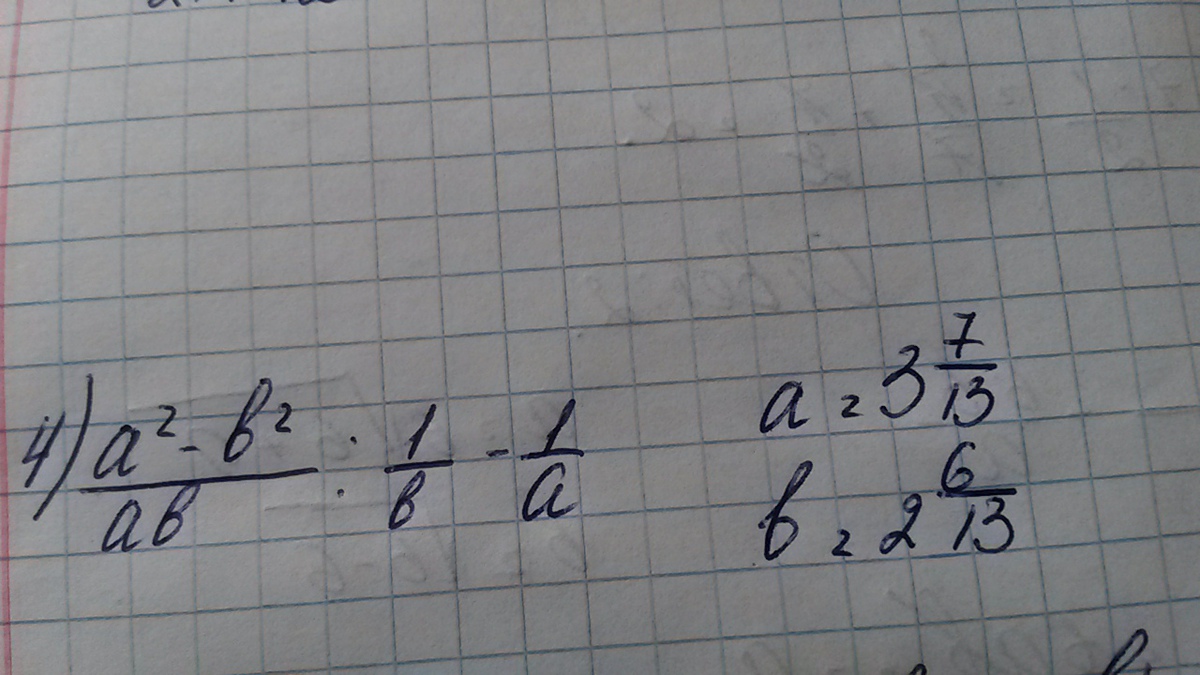 4) (a² - b²)/(ab) : 1/b - 1/a
a = 3 7/13
b = 2 6/13